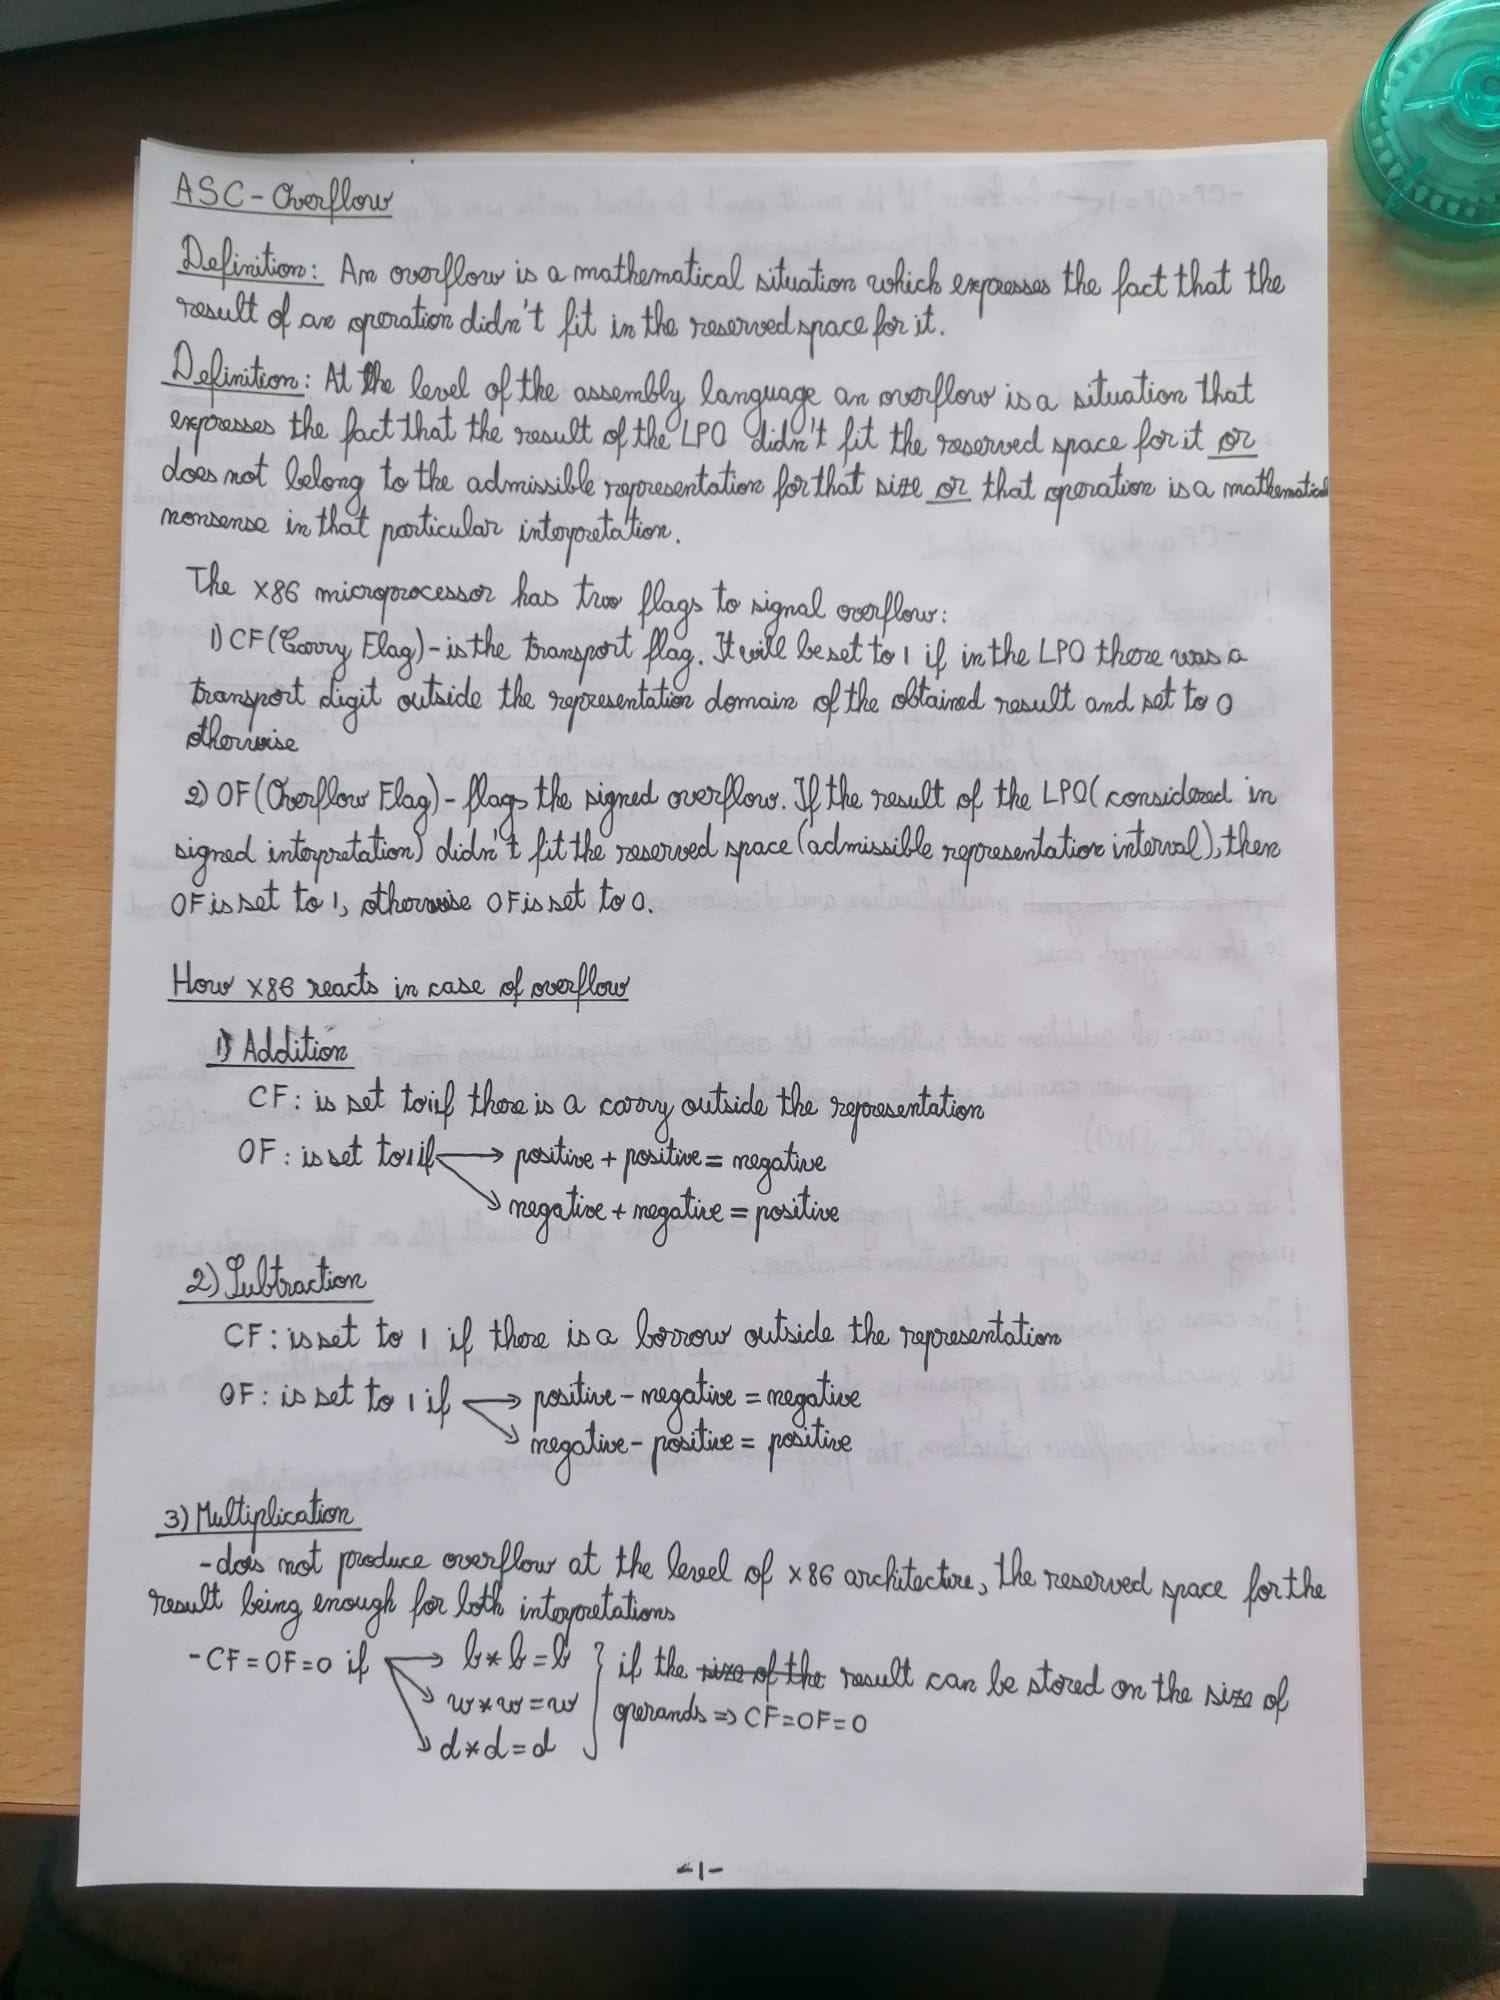 ASC - Overflow
Definition: An overflow is a mathematical situation which expresses the fact that the
result of an operation didn't fit in the reserved space for it.
Definition: At the level of the assembly language an overflow is a situation that
expresses the fact that the result of the LPO didn't fit the reserved space for it or
does not belong to the admissible representation for that size or that operation is a mathematical
nonsense in that particular interpretation.
The x86 microprocessor has two flags to signal overflow:
1) CF (Carry Flag) - is the transport flag. It will be set to 1 if in the LPO there was a
transport digit outside the representation domain of the obtained result and set to 0
otherwise
2) OF (Overflow Flag) - flags the signed overflow. If the result of the LPO (considered in
signed interpretation) didn't fit the reserved space (admissible representation interval), then
OF is set to 1, otherwise OF is set to 0.
How x86 reacts in case of overflow
1) Addition
CF: is set to 1 if there is a carry outside the representation
OF: is set to 1 if → positive + positive = negative
↘ negative + negative = positive
2) Subtraction
CF: is set to 1 if there is a borrow outside the representation
OF: is set to 1 if → positive - negative = negative
↘ negative - positive = positive
3) Multiplication
- does not produce overflow at the level of x86 architecture, the reserved space for the
result being enough for both interpretations
- CF = OF = 0 if → b * b = b } if the size of the result can be stored on the size of
↘ w * w = w operands => CF = OF = 0
↘ d * d = d
-1-